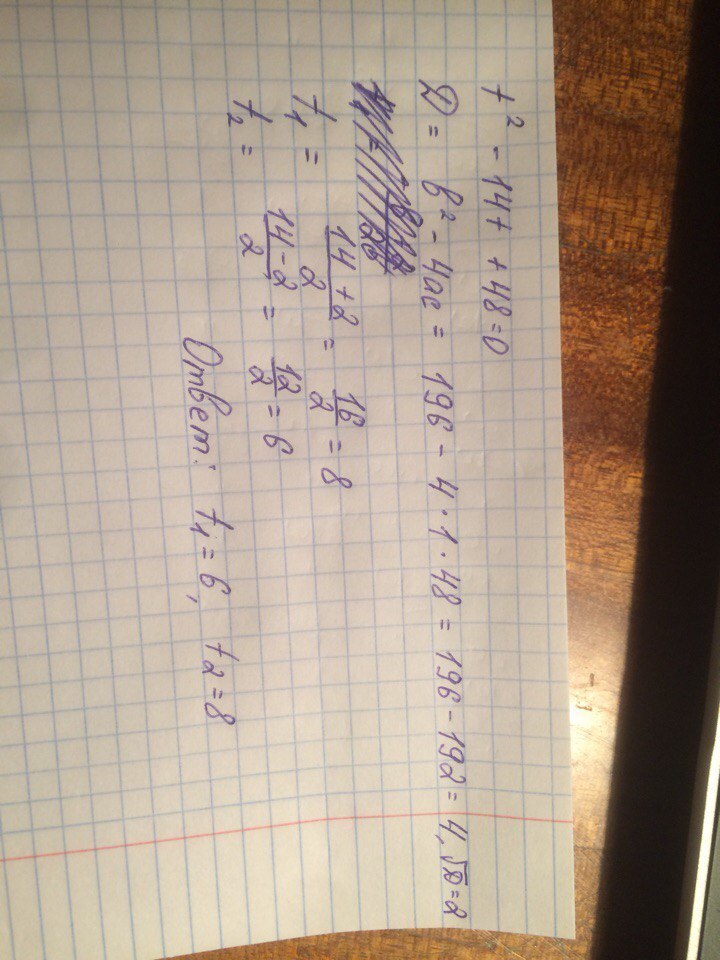 t² - 14t + 48 = 0
D = b² - 4ac = 196 - 4 · 1 · 48 = 196 - 192 = 4, √D = 2
t₁ = (14 + 2)/2 = 16/2 = 8
t₂ = (14 - 2)/2 = 12/2 = 6
Ответ: t₁ = 6, t₂ = 8